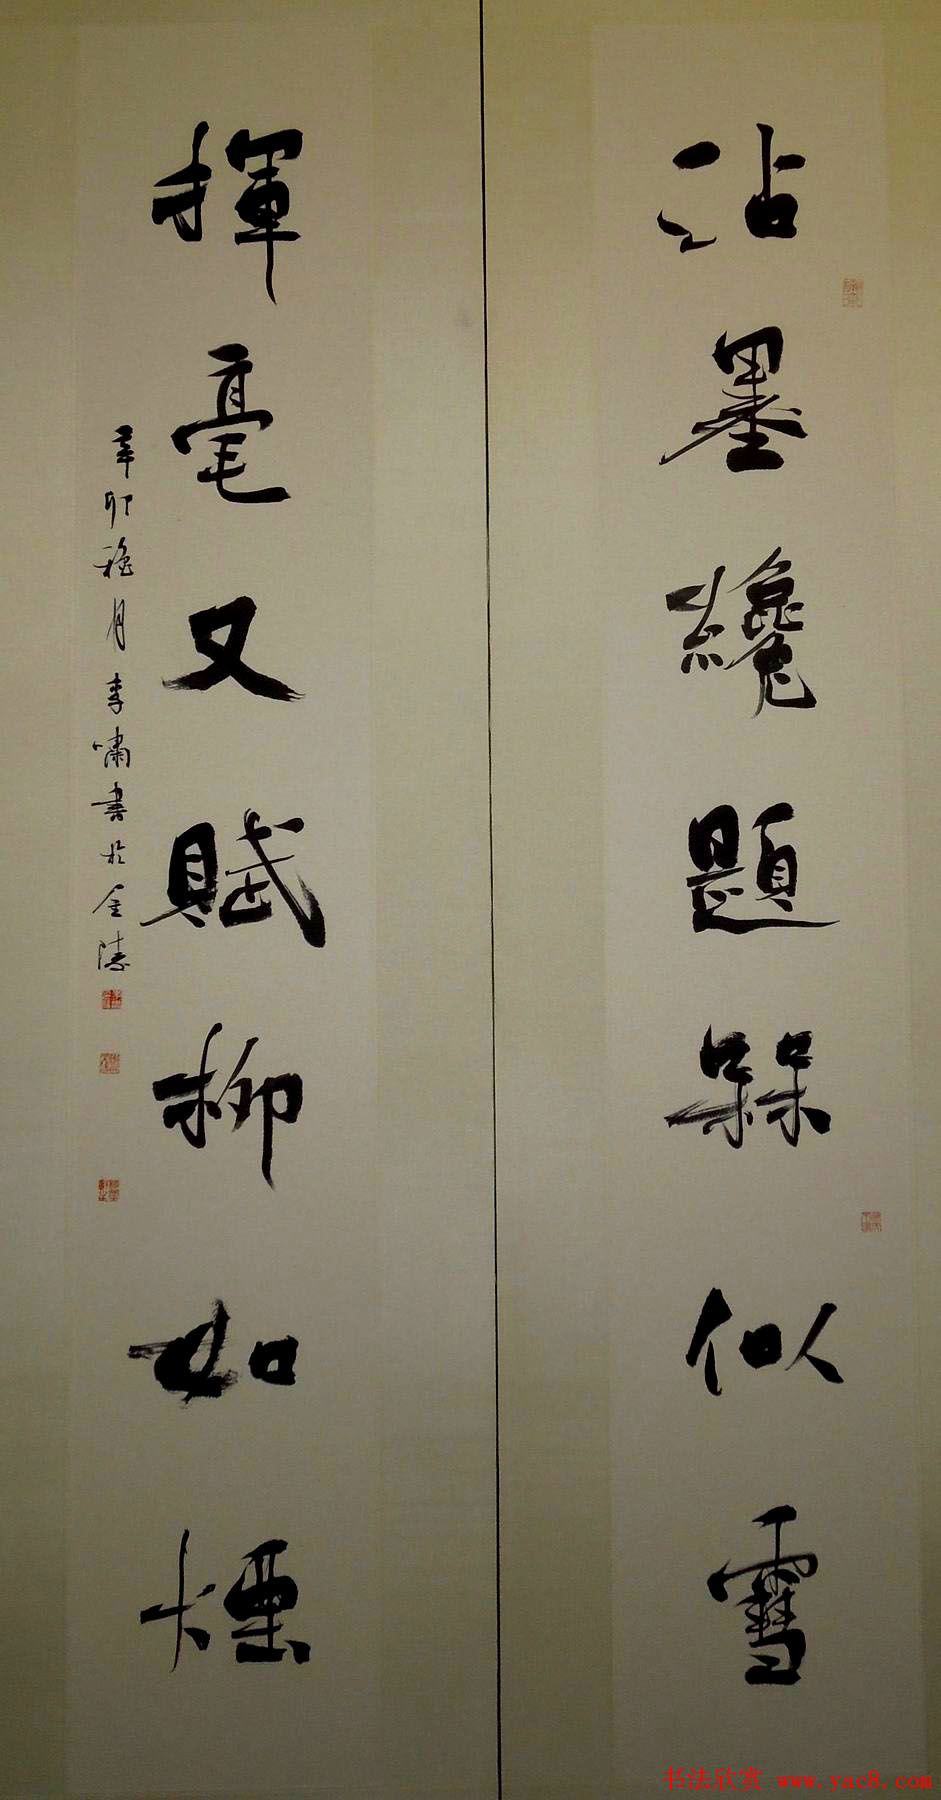 沾墨纔題槑似雪
揮毫又賦柳如煙
辛卯穐月李嘯書於金陵
书法欣赏 www.yac8.com